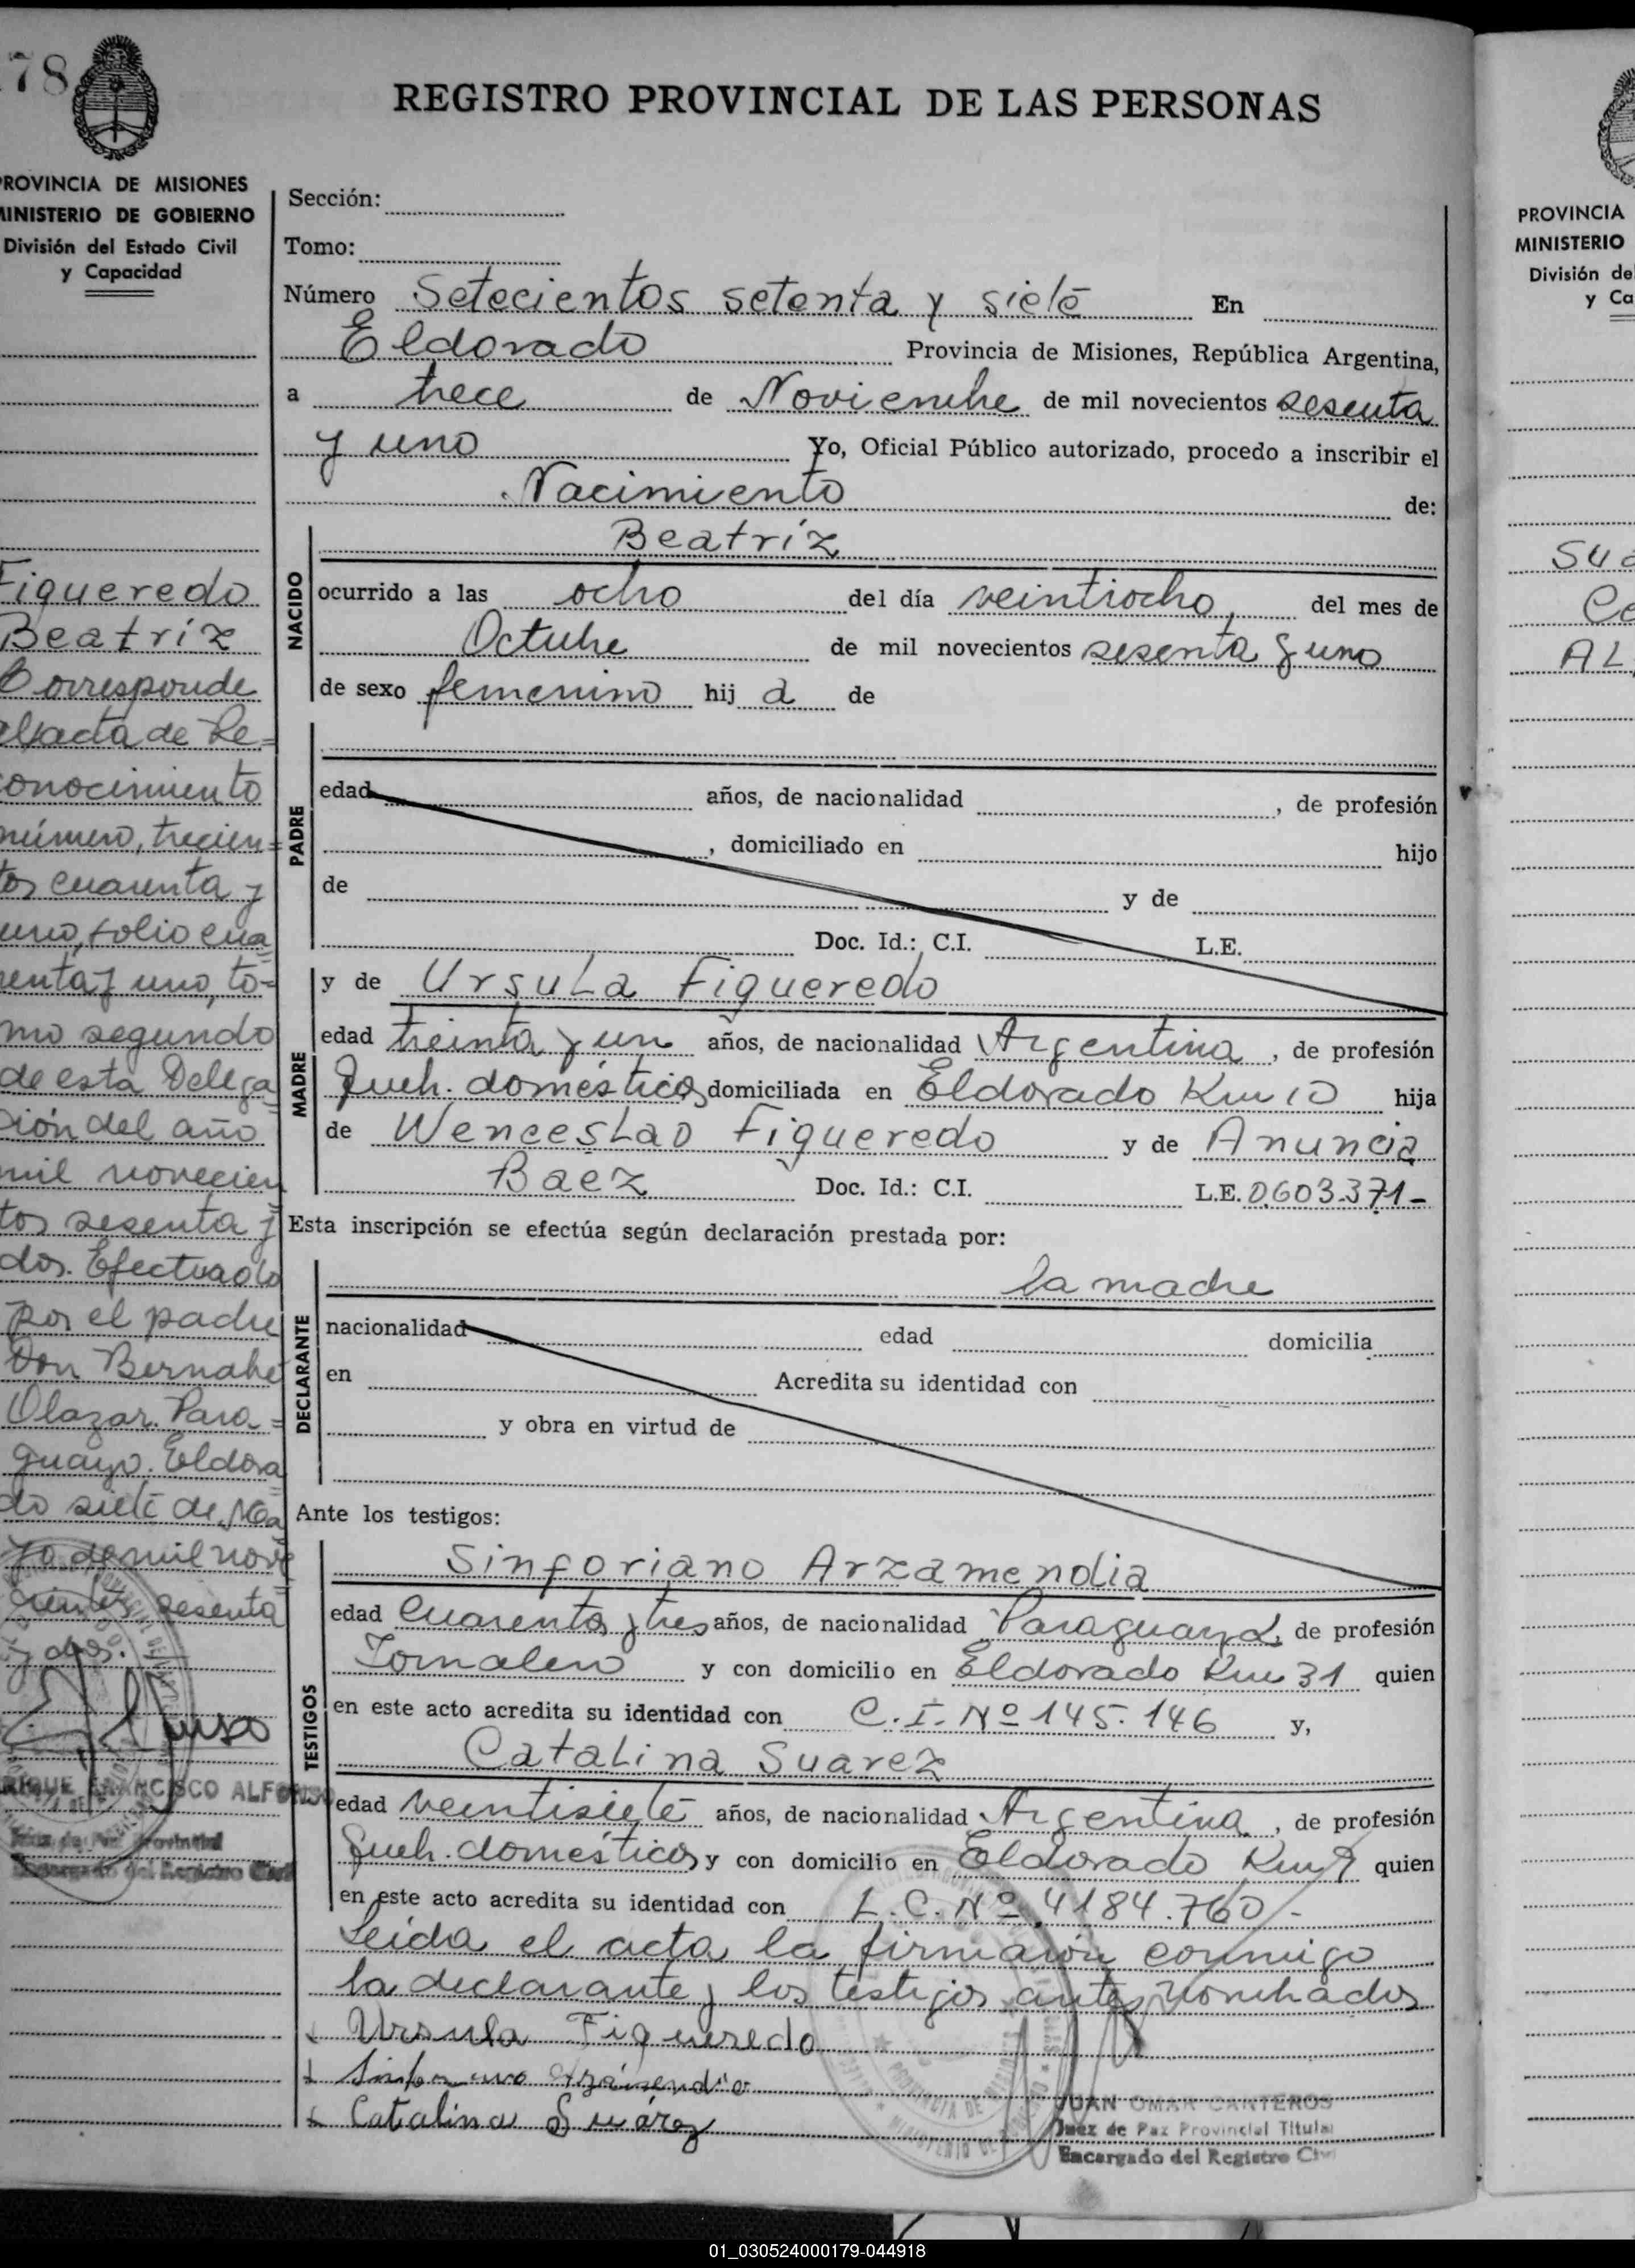 78
PROVINCIA DE MISIONES
MINISTERIO DE GOBIERNO
División del Estado Civil
y Capacidad
Figueredo
Beatríz
Corresponde
al acta de Re=
conocimiento
número, trecien=
tos cuarenta y
uno, folio cua
renta y uno, to=
mo segundo
de esta Delega
ción del año
mil novecien
tos sesenta y
dos. Efectuado
por el padre
Don Bernabe
Olazar. Para=
guayo. Eldora
do siete de Ma
yo de mil nove
cientos sesenta
y dos.
ENRIQUE FRANCISCO ALFONSO
Juez de Paz Provincial
Encargado del Registro Civil
REGISTRO PROVINCIAL DE LAS PERSONAS
Sección:
Tomo:
Número Setecientos setenta y siete En
Eldorado Provincia de Misiones, República Argentina,
a trece de Noviembre de mil novecientos sesenta
y uno Yo, Oficial Público autorizado, procedo a inscribir el
Nacimiento de:
NACIDO
Beatríz
ocurrido a las ocho del día veintiocho, del mes de
Octubre de mil novecientos sesenta y uno
de sexo femenino hij a de
PADRE
edad años, de nacionalidad , de profesión
, domiciliado en hijo
de y de
Doc. Id.: C.I. L.E.
MADRE
y de Ursula Figueredo
edad treinta y un años, de nacionalidad Argentina, de profesión
Queh. domésticos, domiciliada en Eldorado Km 10 hija
de Wenceslao Figueredo y de Anuncia
Baez Doc. Id.: C.I. L.E. 0.603.371-
Esta inscripción se efectúa según declaración prestada por:
DECLARANTE
la madre
nacionalidad edad domicilia
en Acredita su identidad con
y obra en virtud de
Ante los testigos:
TESTIGOS
Sinforiano Arzamendia
edad cuarenta y tres años, de nacionalidad Paraguaya, de profesión
Jornalero y con domicilio en Eldorado Km 31 quien
en este acto acredita su identidad con C.I. Nº 145.146 y,
Catalina Suarez
edad veintisiete años, de nacionalidad Argentina, de profesión
Queh. domésticos y con domicilio en Eldorado Km 9 quien
en este acto acredita su identidad con L.C. Nº 4184.760/-
Leída el acta la firmaron conmigo
la declarante y los testigos antes nombrados
Ursula Figueredo
Catalina Suárez
JUAN OMAR CANTEROS
Juez de Paz Provincial Titular
Encargado del Registro Civil
PROVINCIA
MINISTERIO
División de
y Ca
Sua
Ce
AL
01_030524000179-044918